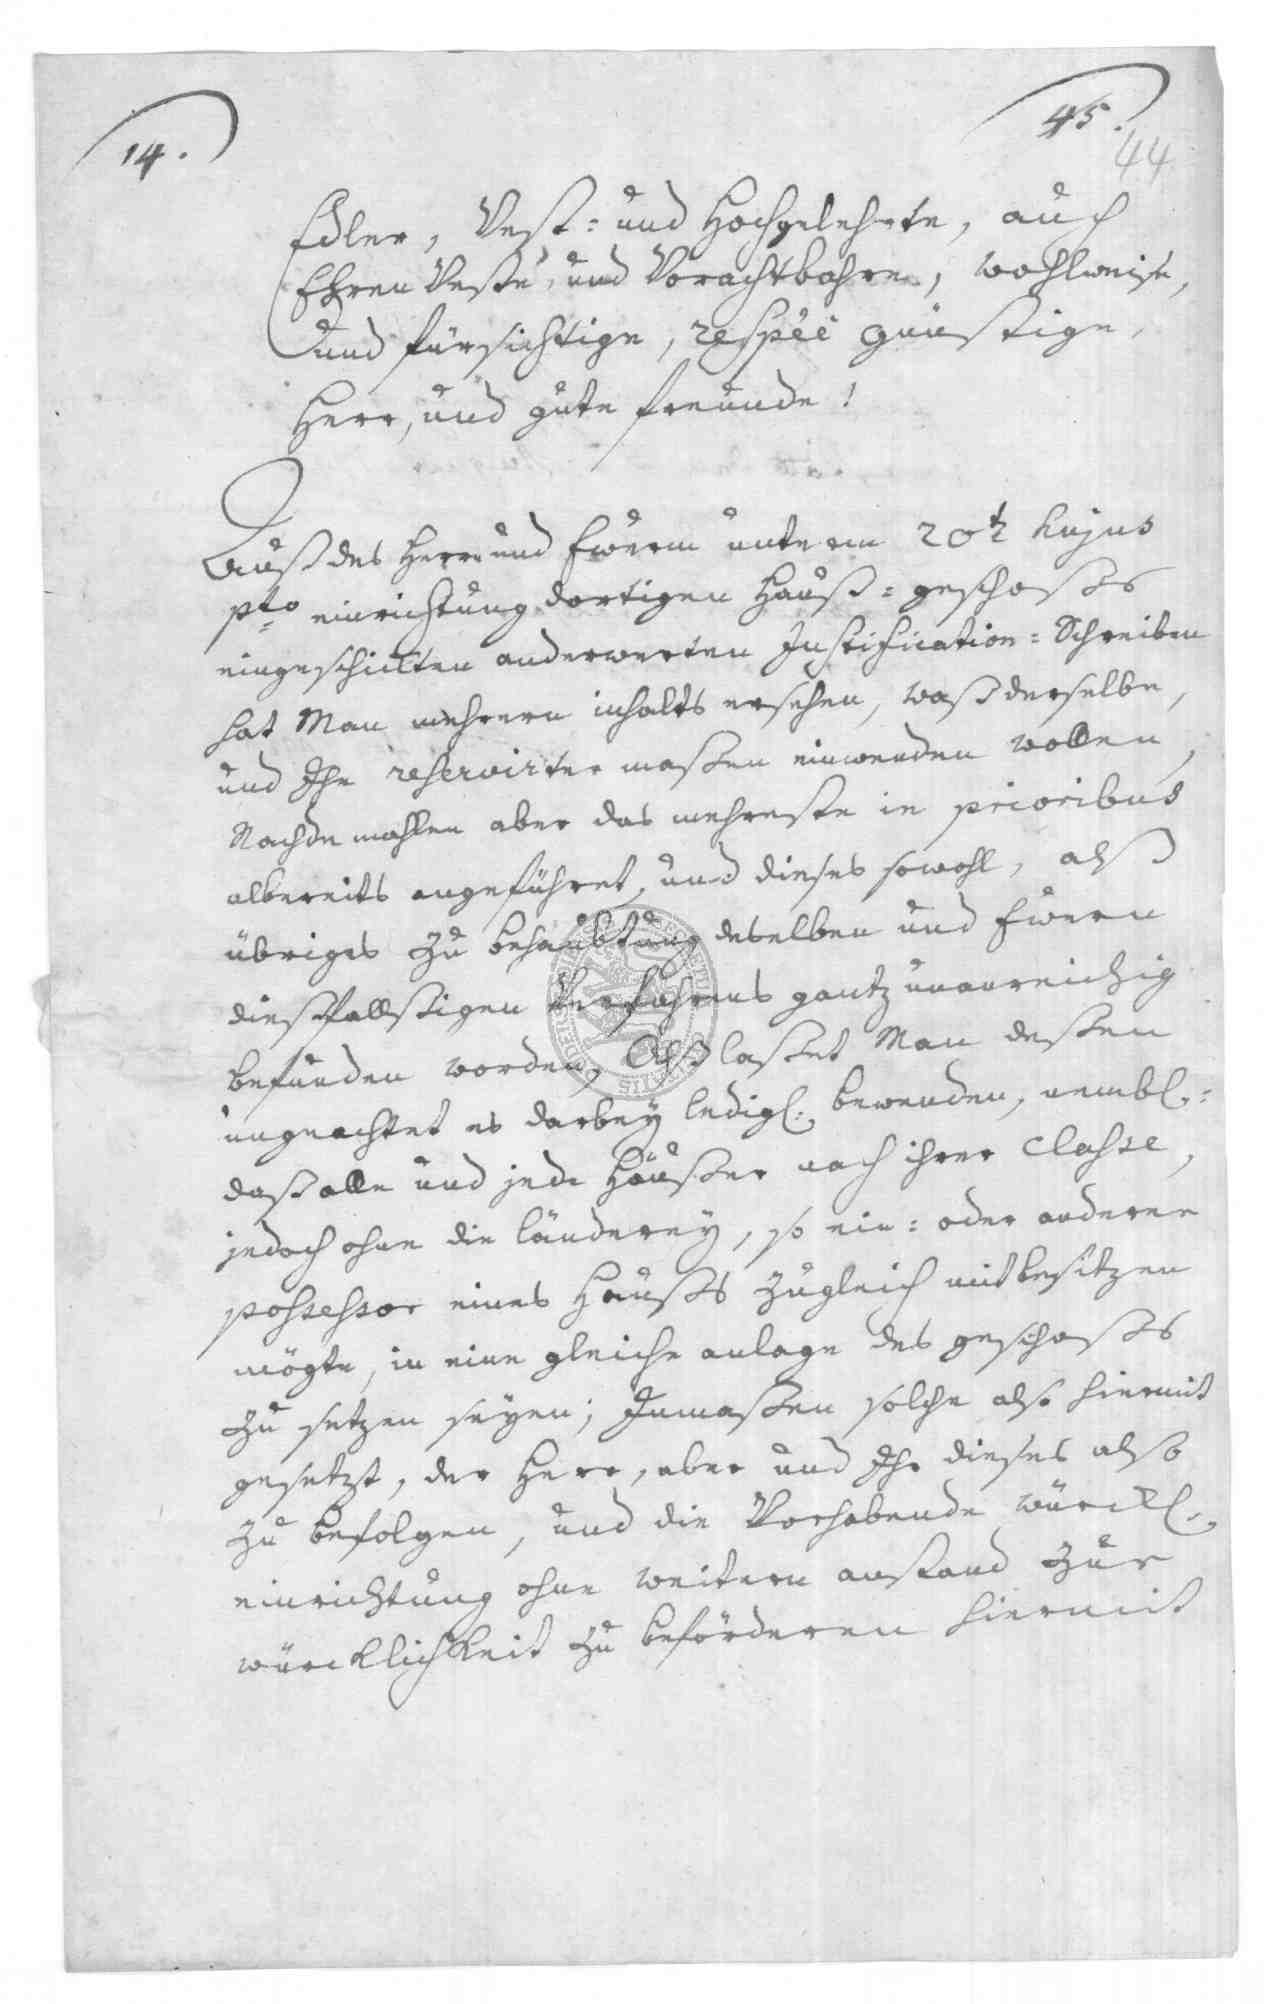 14.
45.
44
Edler, Vest- und Hochgelehrte, auch
Ehren Veste, und Vorachtbahre, wohlweise,
und fürsichtige, respèe günstige,
Herr, und gute freunde!
Auß des Herrn und Ewerm unterm 20t hujus
pto einrichtung dortigen Hauß-geschosses
eingeschickten anderwerten Justification-Schreiben
hat Man mehrern inhalts ersehen, waß derselbe,
und Ihr reservirter massen einwenden wollen,
Nachdemahlen aber das mehreste in prioribus
albereits angeführet, und dieses sowohl, alß
übriges zu behaubtung deselben und Ewern
dießfallßigen Verfahrens gantz unzureichig
befunden worden, Alß lasset Man dessen
ungeachtet es darbey ledigl: bewenden, nembl:
daß alle und jede Häußer nach ihrer Classe,
jedoch ohne die länderey, so ein- oder anderer
possessor eines Haußes zugleich mitbesitzen
mögte, in eine gleiche anlage des geschosses
zu setzen seyen; Inmassen solche also hiermit
gesetzt, der Herr, aber und Ihr dieses also
zu befolgen, und die Vorhabende würckl:
einrichtung ohne weitern anstand zur
würcklichkeit zu beförderen hiermit